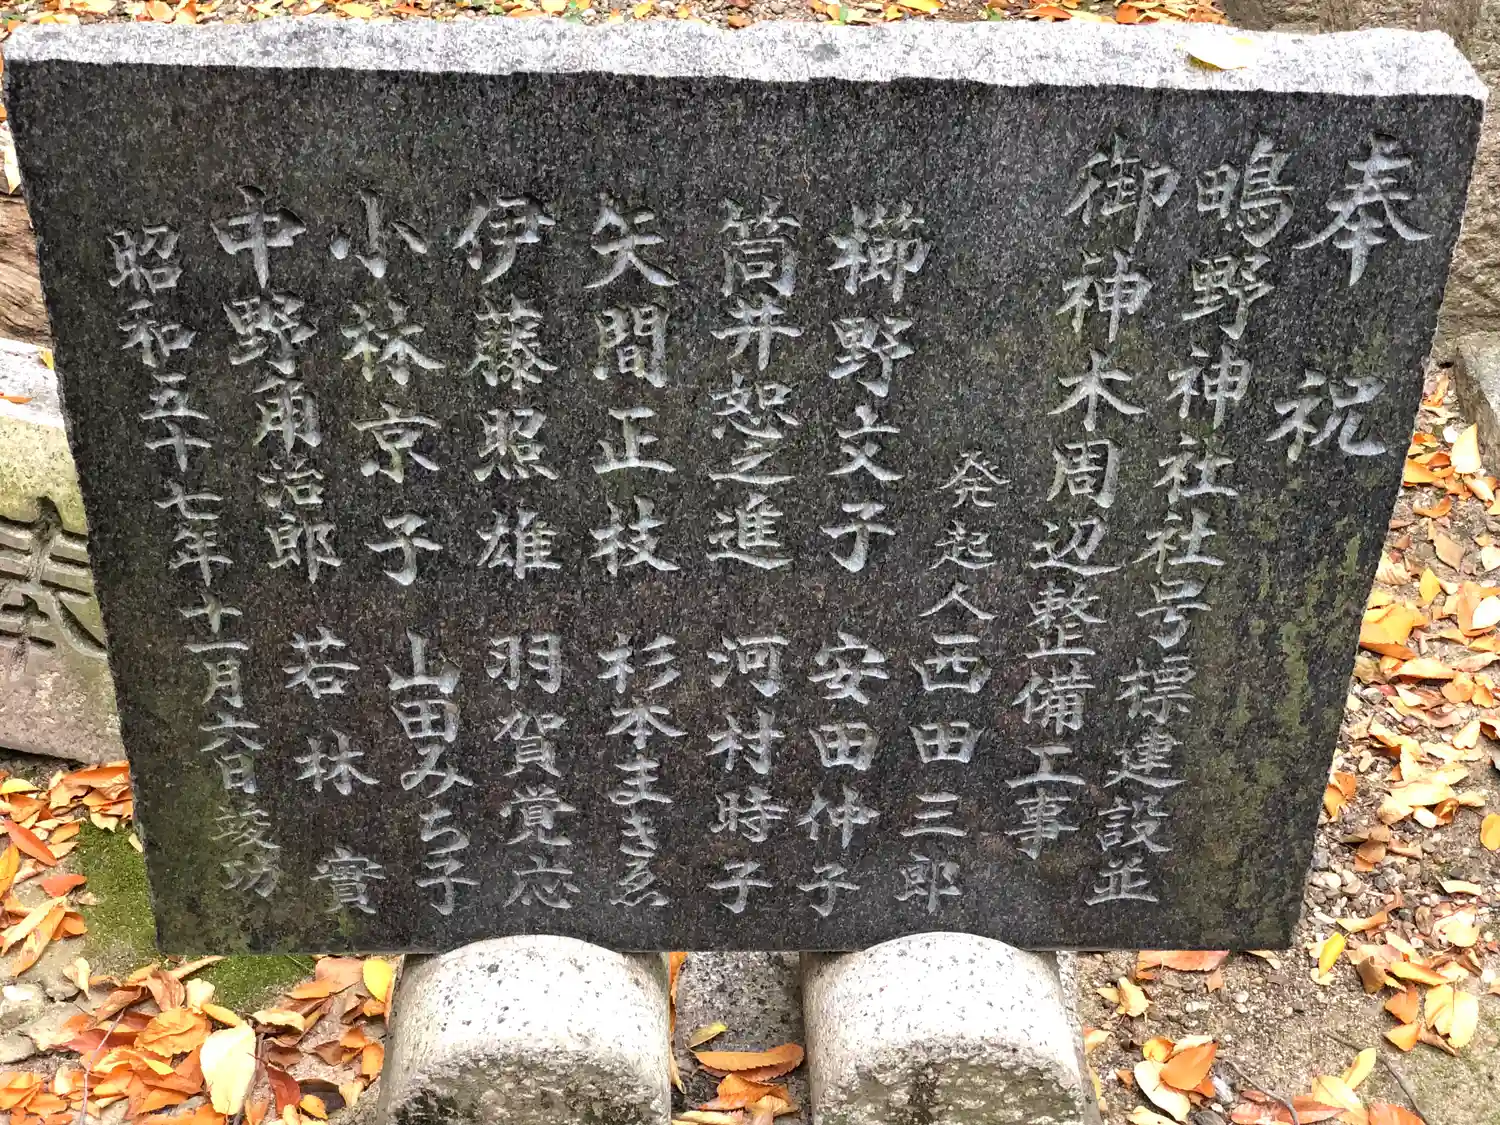 奉祝
鴫野神社社号標建設並
御神木周辺整備工事
発起人西田三郎
櫛野文子 安田仲子
筒井恕之進 河村時子
矢間正枝 杉本まきゑ
伊藤照雄 羽賀覚
小林京子 山田みち子
中野角治郎 若林實
昭和五十七年十一月六日竣功